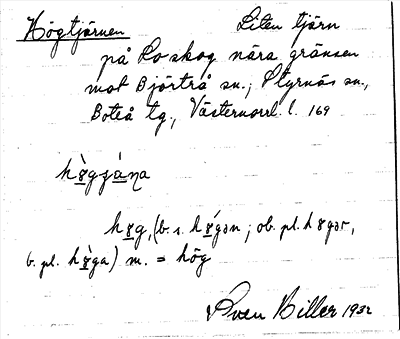 Högtjärnen Liten tjärn
på Lo skog nära gränsen
mot Björtrå sn.; Styrnäs sn.,
Boteå tg., Västernorrl. l. 169
hɣg, (b. s. hɣ́gən; ob. pl. hɣgər,
b. pl. hɣ̀ga) m. = hög
Sven Biller 1932